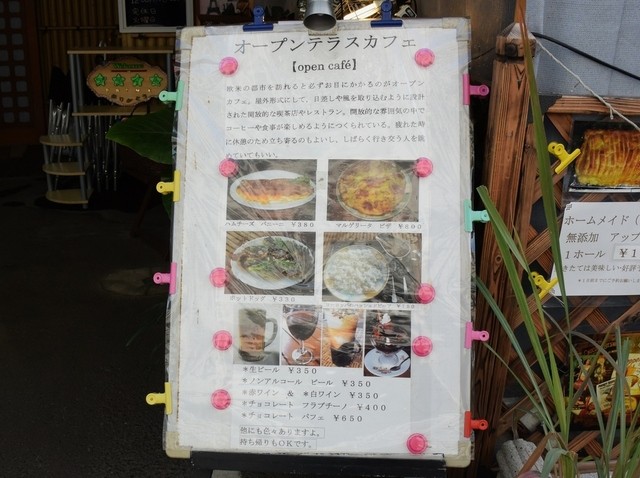 オープンテラスカフェ
【open café】
欧米の都市を訪れると必ずお目にかかるのがオープン
カフェ。屋外形式にして、日差しや風を取り込むように設計
された開放的な喫茶店やレストラン。開放的な雰囲気の中で
コーヒーや食事が楽しめるようにつくられている。疲れた時
に休憩のため立ち寄るのもよいし、しばらく行き交う人を眺
めていてもいい。
ハムチーズ パニーニ ¥380
マルゲリータ ピザ ¥600
ホットドッグ ¥330
*生ビール ¥350
*ノンアルコール ビール ¥350
*赤ワイン & *白ワイン ¥350
*チョコレート フラプチーノ ¥400
*チョコレート パフェ ¥650
他にも色々ありますよ。
持ち帰りもOKです。
ホームメイド
無添加 アップ
1ホール ¥1
きたては美味しい好評